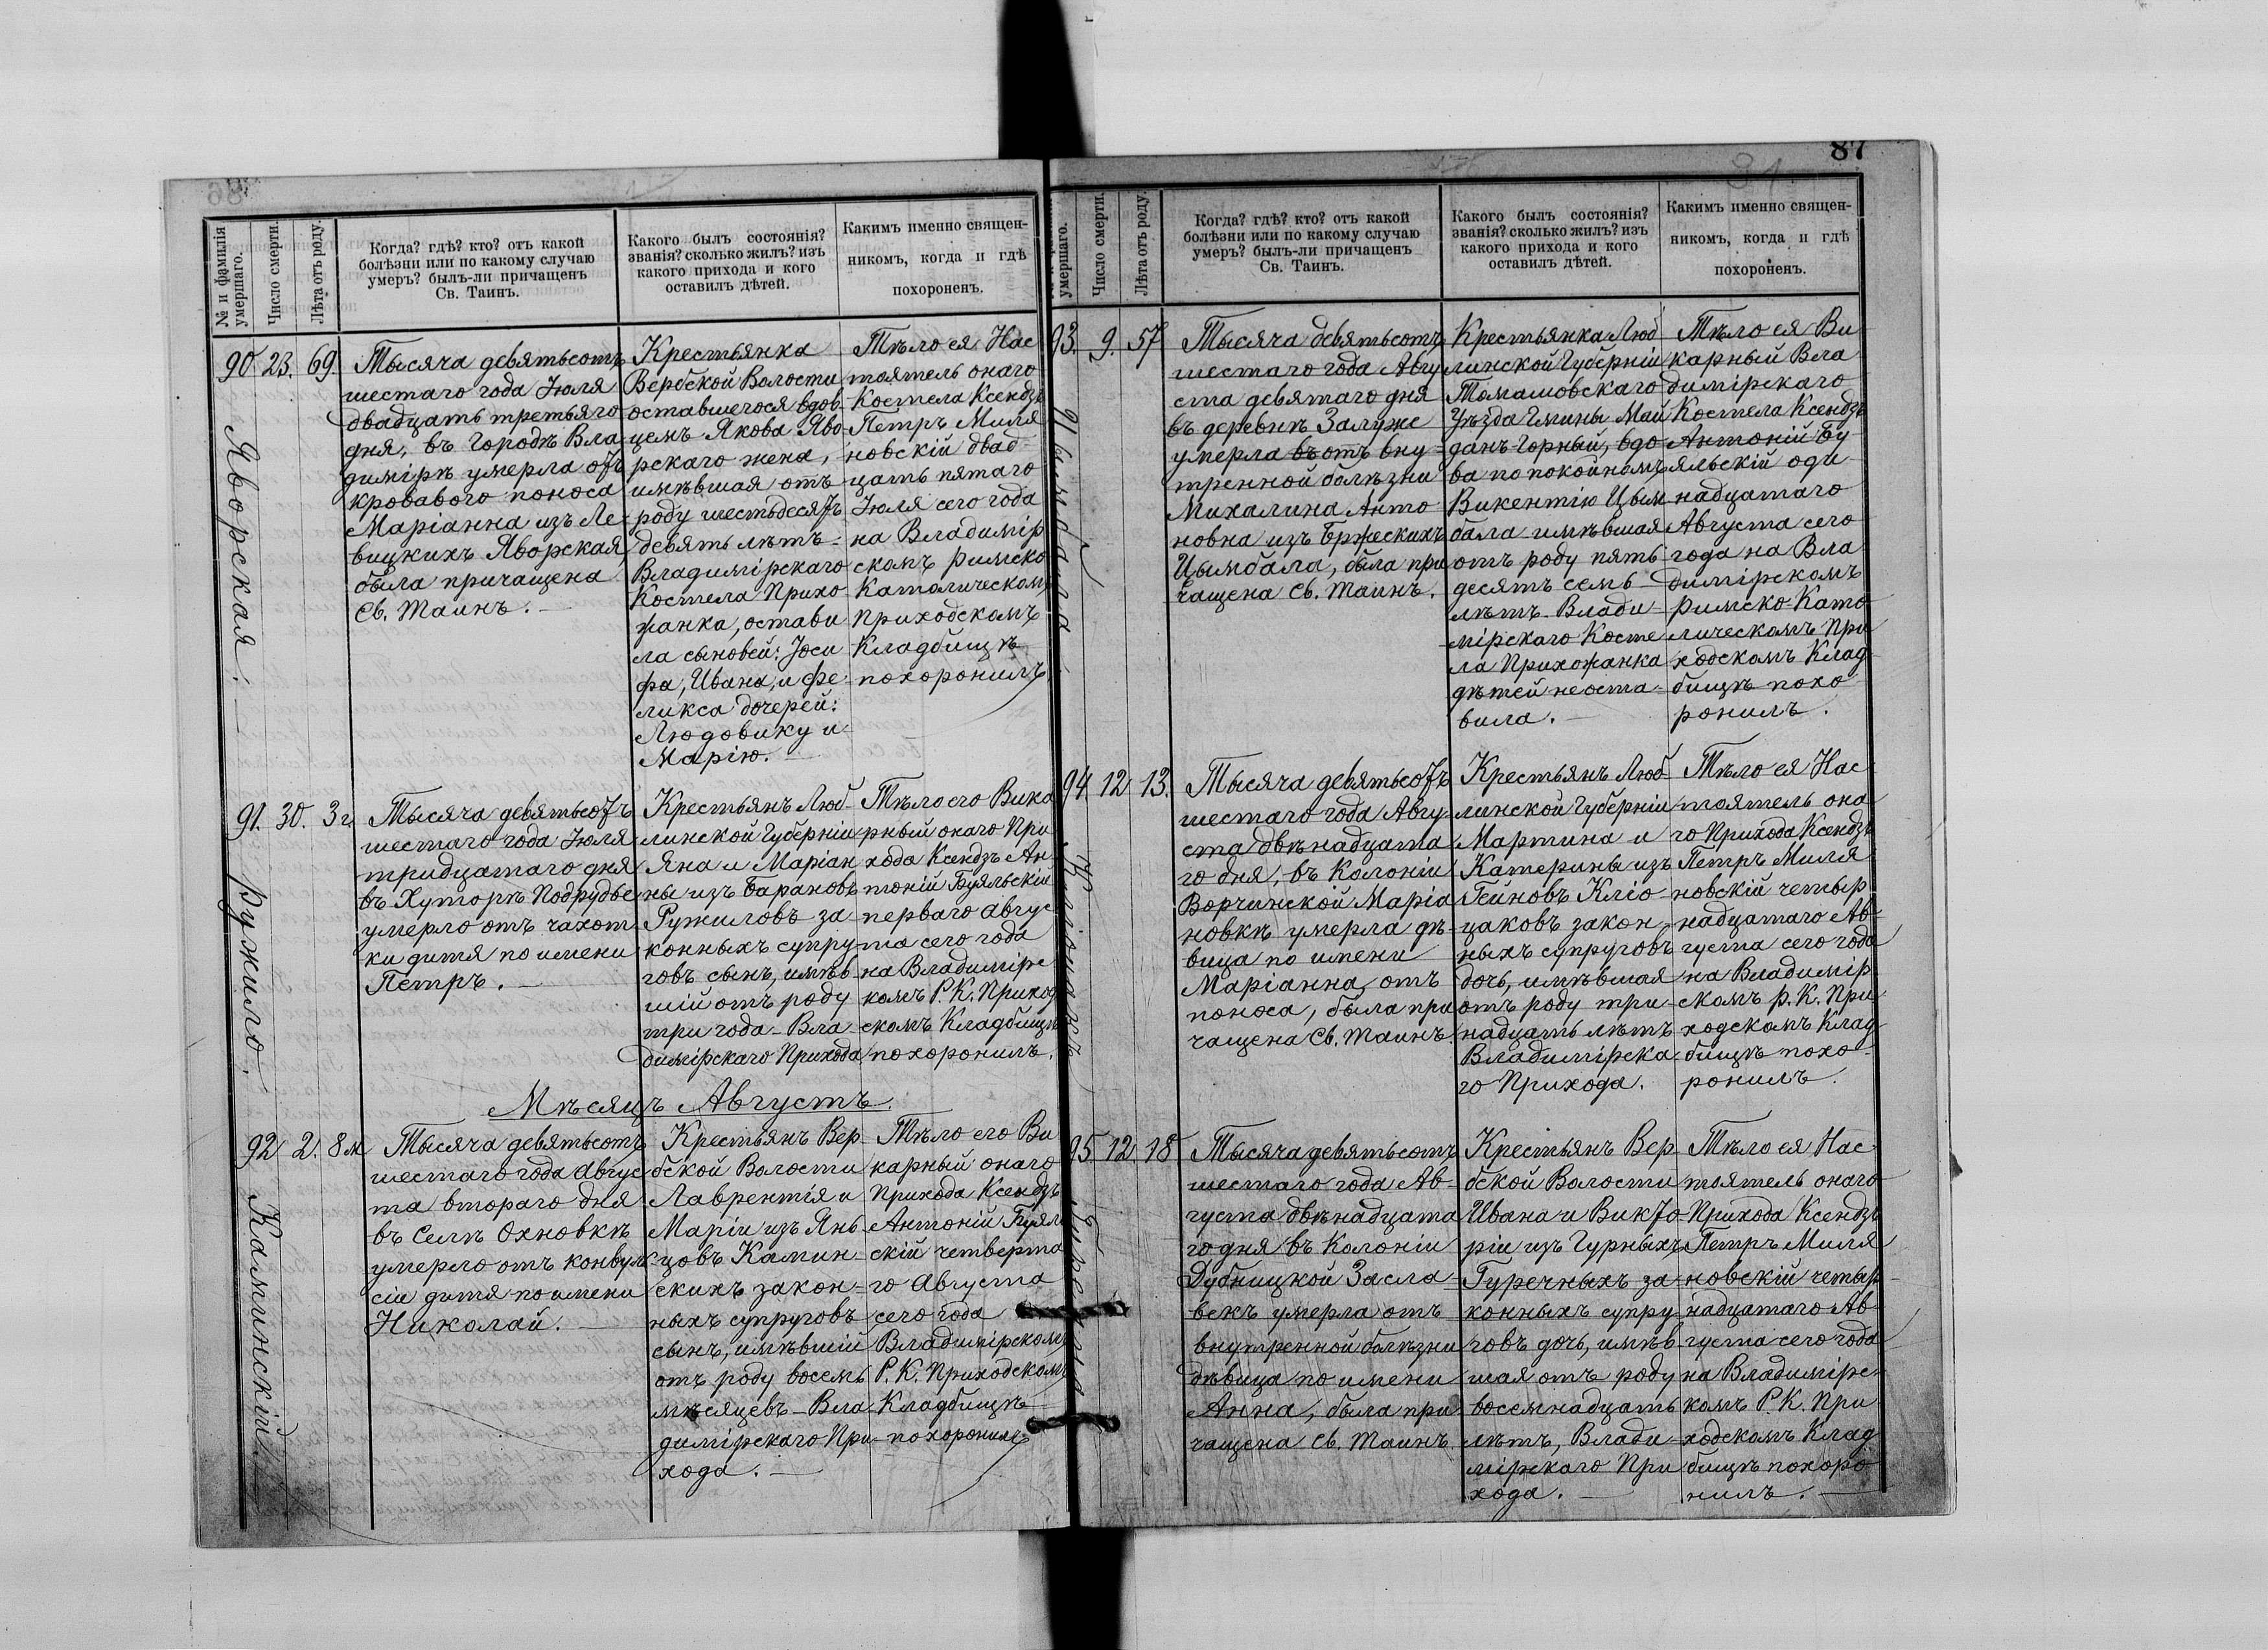 87
№ и фамилія умершаго.
Число смерти.
Лѣта отъ роду.
Когда? гдѣ? кто? отъ какой
болѣзни или по какому случаю
умеръ? былъ-ли причащенъ
Св. Таинъ.
Какого былъ состоянія?
званія? сколько жилъ? изъ
какого прихода и кого
оставилъ дѣтей.
Какимъ именно священ-
никомъ, когда и гдѣ
похороненъ.
90
Яворская.
23.
69.
Тысяча девятьсотъ
шестаго года Июля
двадцать третьяго
дня, въ городѣ Вла-
димірѣ умерла отъ
кроваваго поноса
Маріанна изъ Ле-
вицкихъ Яворская,
была причащена
Св. Таинъ.
Крестьянка
Вербской Волости
оставшегося вдов-
цемъ Якова Яво-
рскаго жена,
имѣвшая отъ
роду шестьдесятъ
девять лѣтъ-
Владимірскаго
Костела Прихо-
жанка, остави
ла сыновей: Іоси
фа, Ивана, и Фе-
ликса дочерей:
Людовику и
Марію.
Тѣло ея Нас
тоятель онаго
Костела Ксендзъ
Петръ Миля
новскій двад-
цать пятаго
Июля сего года
на Владимір
скомъ Римско
Католическомъ
Приходскомъ
Кладбищѣ
похоронилъ
91.
Ружило.
30.
3 г.
Тысяча девятьсотъ
шестаго года Июля
тридцатаго дня
въ Хуторѣ Подрудье
умерло отъ чахот
ки дитя по имени
Петръ.
Крестьянъ Люб-
линской Губерніи
Яна и Маріан
ны изъ Барановъ
Ружиловъ за-
конныхъ супру
говъ сынъ, имѣв-
шій отъ роду
три года - Вла-
димірскаго Прихода
Тѣло его Вика
рный онаго При
хода Ксендзъ Ан-
тоній Буяльскій
перваго Авгус
та сего года
на Владимірс
комъ Р. К. Приход
скомъ Кладбищѣ
похоронилъ.
Мѣсяцъ Августъ.
92
Каминскій
2.
8 м
Тысяча девятьсотъ
шестаго года Авгус
та втораго дня
въ Селѣ Охновкѣ
умерло отъ конвуль
сіи дитя по имени
Николай.
Крестьянъ Вер-
бской Волости
Лаврентія и
Маріи изъ Янь-
цовъ Камин-
скихъ закон-
ныхъ супруговъ
сынъ, имѣвшій
отъ роду восемь
мѣсяцевъ - Вла
димірскаго При-
хода.
Тѣло его Ви
карный онаго
Прихода Ксендзъ
Антоній Буяль
скій четверта
го Августа
сего года
Владимірскомъ
Р. К. Приходскомъ
Кладбищѣ
похоронилъ
умершаго.
Число смерти.
Лѣта отъ роду.
Когда? гдѣ? кто? отъ какой
болѣзни или по какому случаю
умеръ? былъ-ли причащенъ
Св. Таинъ.
Какого былъ состоянія?
званія? сколько жилъ? изъ
какого прихода и кого
оставилъ дѣтей.
Какимъ именно священ-
никомъ, когда и гдѣ
похороненъ.
93.
9.
57
Тысяча девятьсотъ
шестаго года Авгу
ста девятаго дня
въ деревнѣ Залужс
умерла въ отъ вну-
тренной болѣзни
Михалина Анто
новна изъ Бржескихъ
Цымбала, была при
чащена Св. Таинъ.
Крестьянка Люб
линской Губерніи
Томашовскаго
Уѣзда Гмины Май
данъ-Горный, вдо
ва по покойномъ
Викентію Цым
бала имѣвшая
отъ роду пять-
десятъ семь
лѣтъ. Влади-
мірскаго Косте
ла Прихожанка
дѣтей не оста-
вила.
Тѣло ея Ви
карный Вла
димірскаго
Костела Ксендзъ
Антоній Бу
яльскій оди-
надцатаго
Августа сего
года на Вла
димірскомъ
Римско-Като
лическомъ При
ходскомъ Клад
бищѣ похо-
ронилъ.
94
12
13.
Тысяча девятьсотъ
шестаго года Авгу-
ста двѣнадцата
го дня, въ Колоніи
Ворчинской Маріа
новкѣ умерла дѣ-
вица по имени
Маріанна, отъ
поноса, была при
чащена Св. Таинъ.
Крестьянъ Люб-
линской Губерніи
Мартина и
Катерины изъ
Гейновъ Кліо-
цаковъ закон-
ныхъ супруговъ
дочь, имѣвшая
отъ роду три-
надцать лѣтъ
Владимірска
го Прихода.
Тѣло ея Нас
тоятель она
го Прихода Ксендзъ
Петръ Миля
новскій четыр
надцатаго Ав-
густа сего года
на Владимір
скомъ Р. К. При
ходскомъ Клад
бищѣ похо-
ронилъ.
95.
12.
18
Тысяча девятьсотъ
шестаго года Ав-
густа двѣнадцата
го дня въ Колоніи
Дубницкой Засла-
векъ умерла отъ
внутренной болѣзни
дѣвица по имени
Анна, была при-
чащена Св. Таинъ
Крестьянъ Вер-
бской Волости
Ивана и Викто-
ріи изъ Гурныхъ
Гуречныхъ за-
конныхъ супру
говъ дочь, имѣв
шая отъ роду
восемнадцать
лѣтъ, Влади-
мірскаго При
хода.
Тѣло ея Нас
тоятель онаго
Прихода Ксендзъ
Петръ Миля
новскій четыр-
надцатаго Ав-
густа сего года
на Владимірс-
комъ Р. К. При
ходскомъ Клад
бищѣ похоро
нилъ.